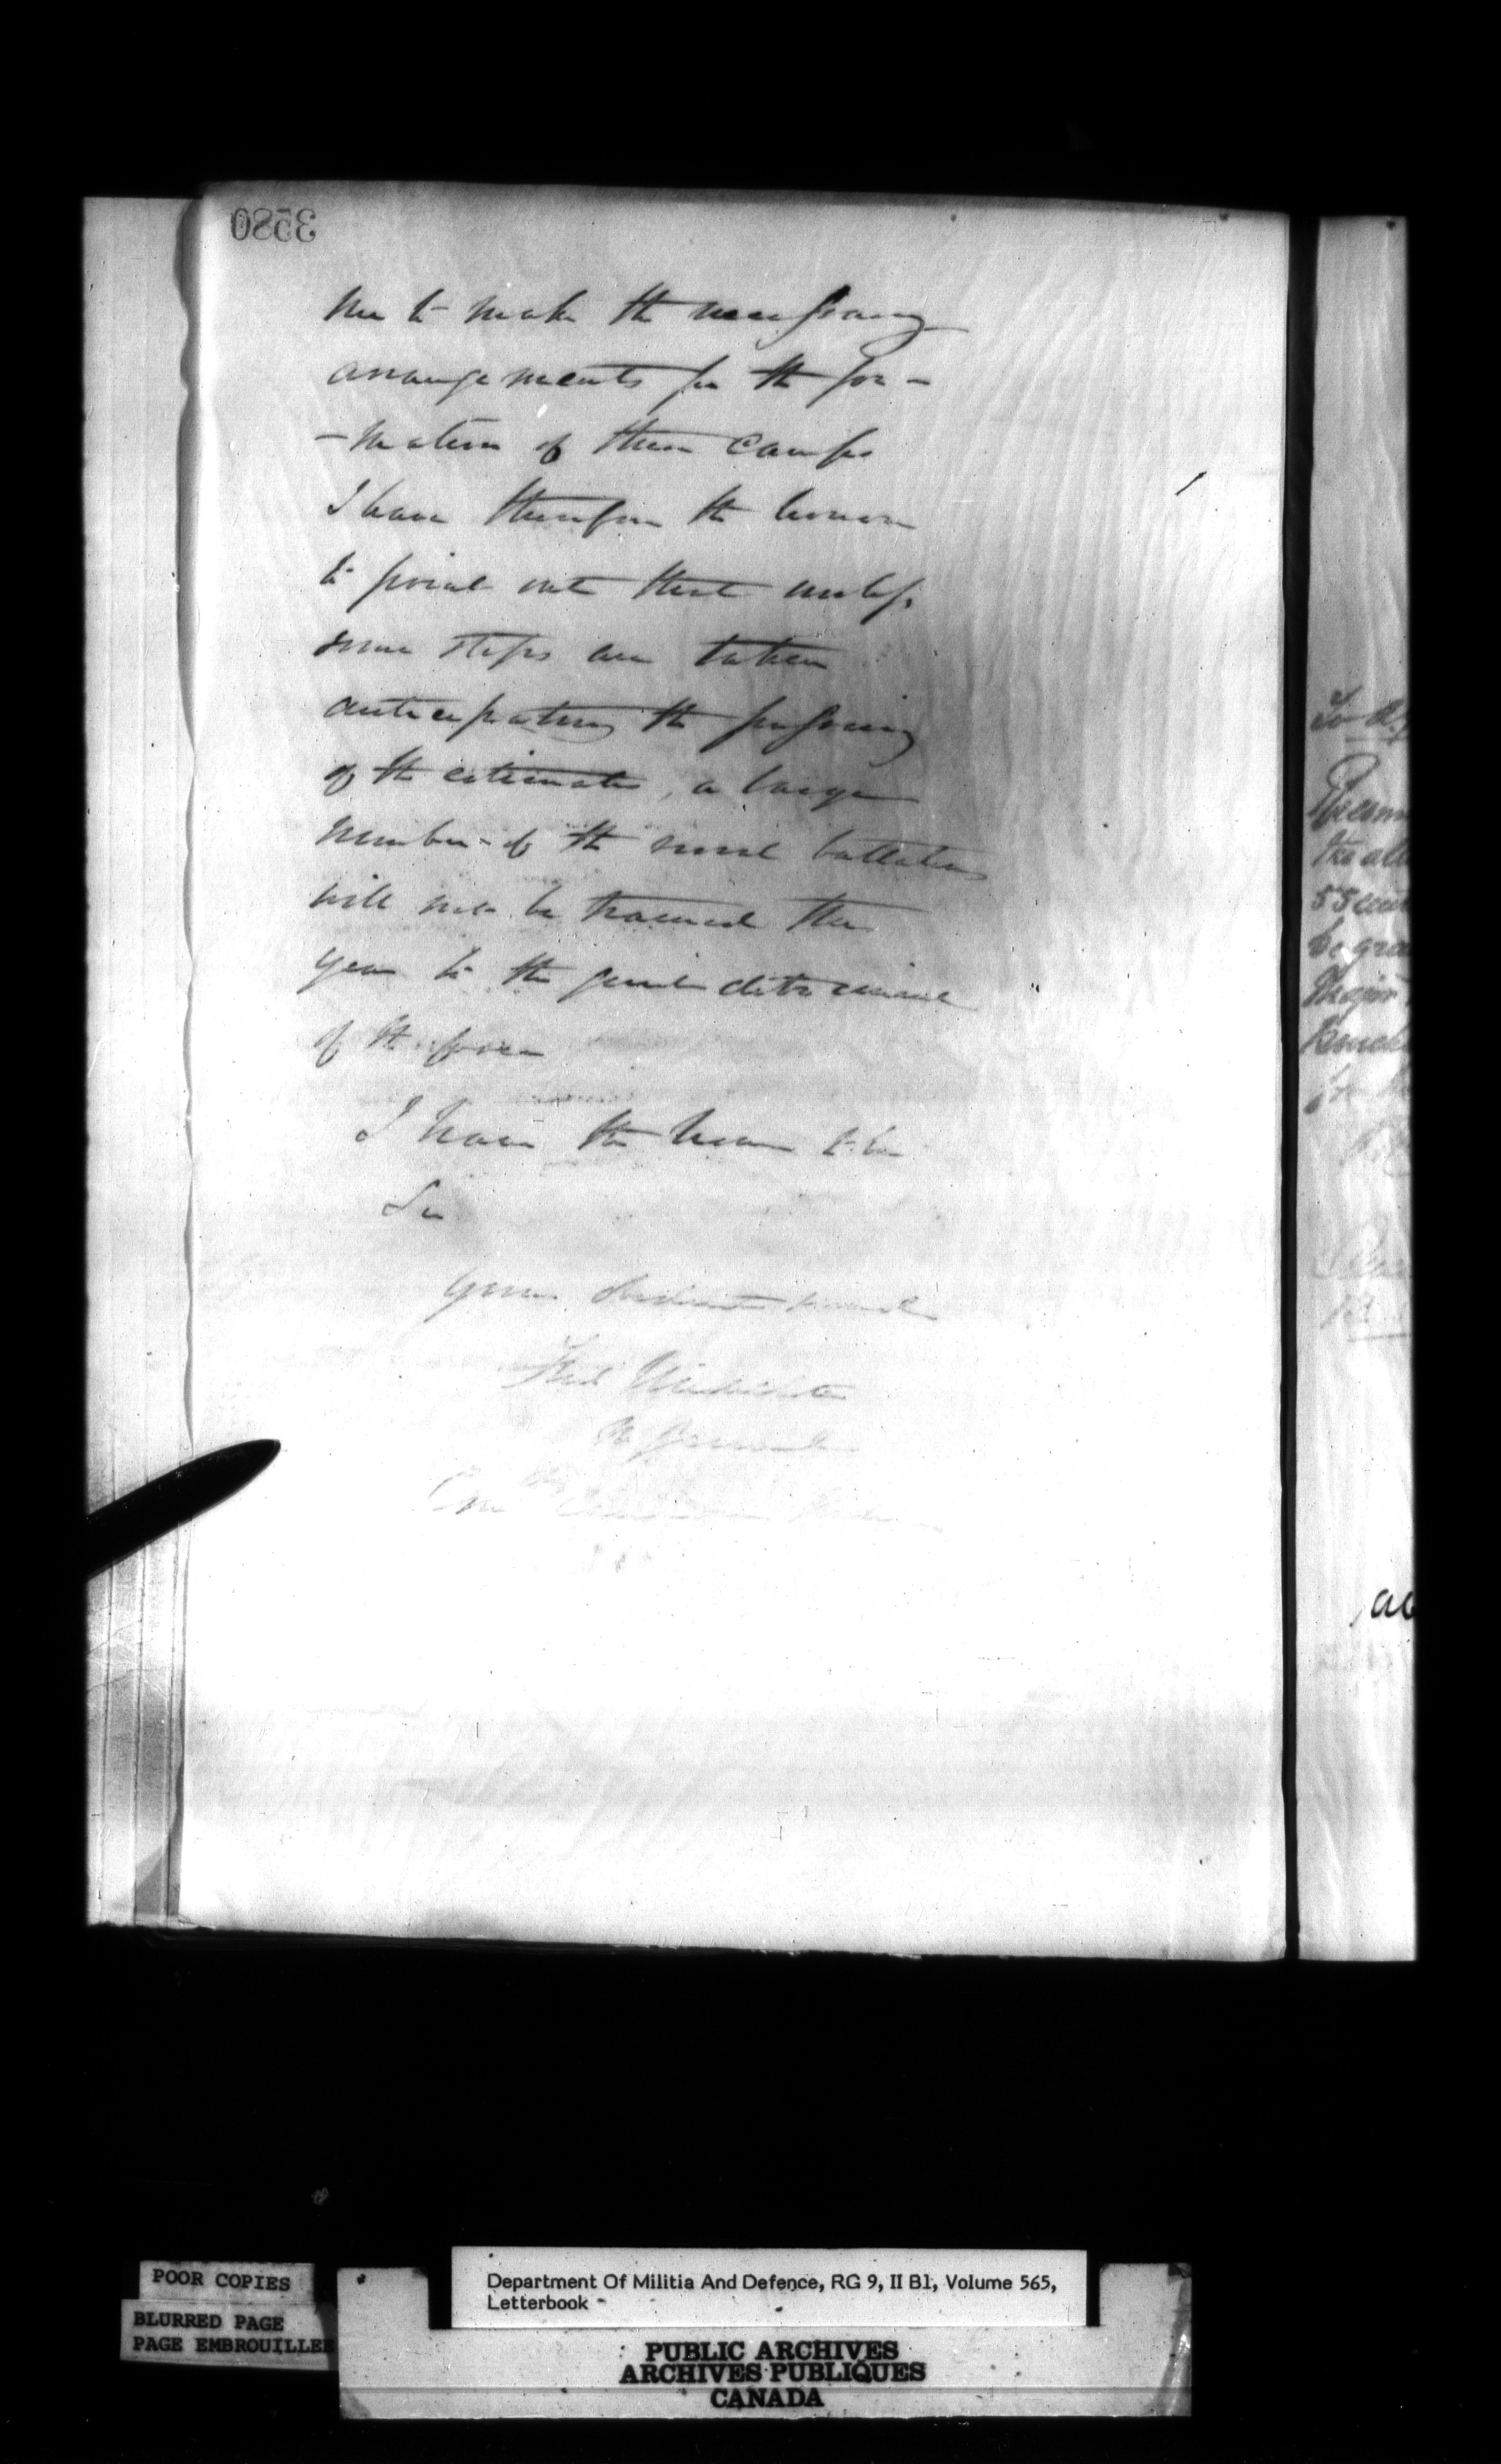 3580
me to make the necessary
arrangements for the for-
-mation of these camps
I have therefore the honour
to point out that unless
some steps are taken
anticipating the passing
of the estimates, a large
number of the rural battalions
will not be trained this
year to the great detriment
of the force
I have the honor to be
Sir
Your obedient servant
Fred Middleton
M General
Comg
To
Recom
the all
55 cent
be gra
Major
ac
POOR COPIES
BLURRED PAGE
PAGE EMBROUILLEE
Department Of Militia And Defence, RG 9, II B1, Volume 565,
Letterbook -
PUBLIC ARCHIVES
ARCHIVES PUBLIQUES
CANADA